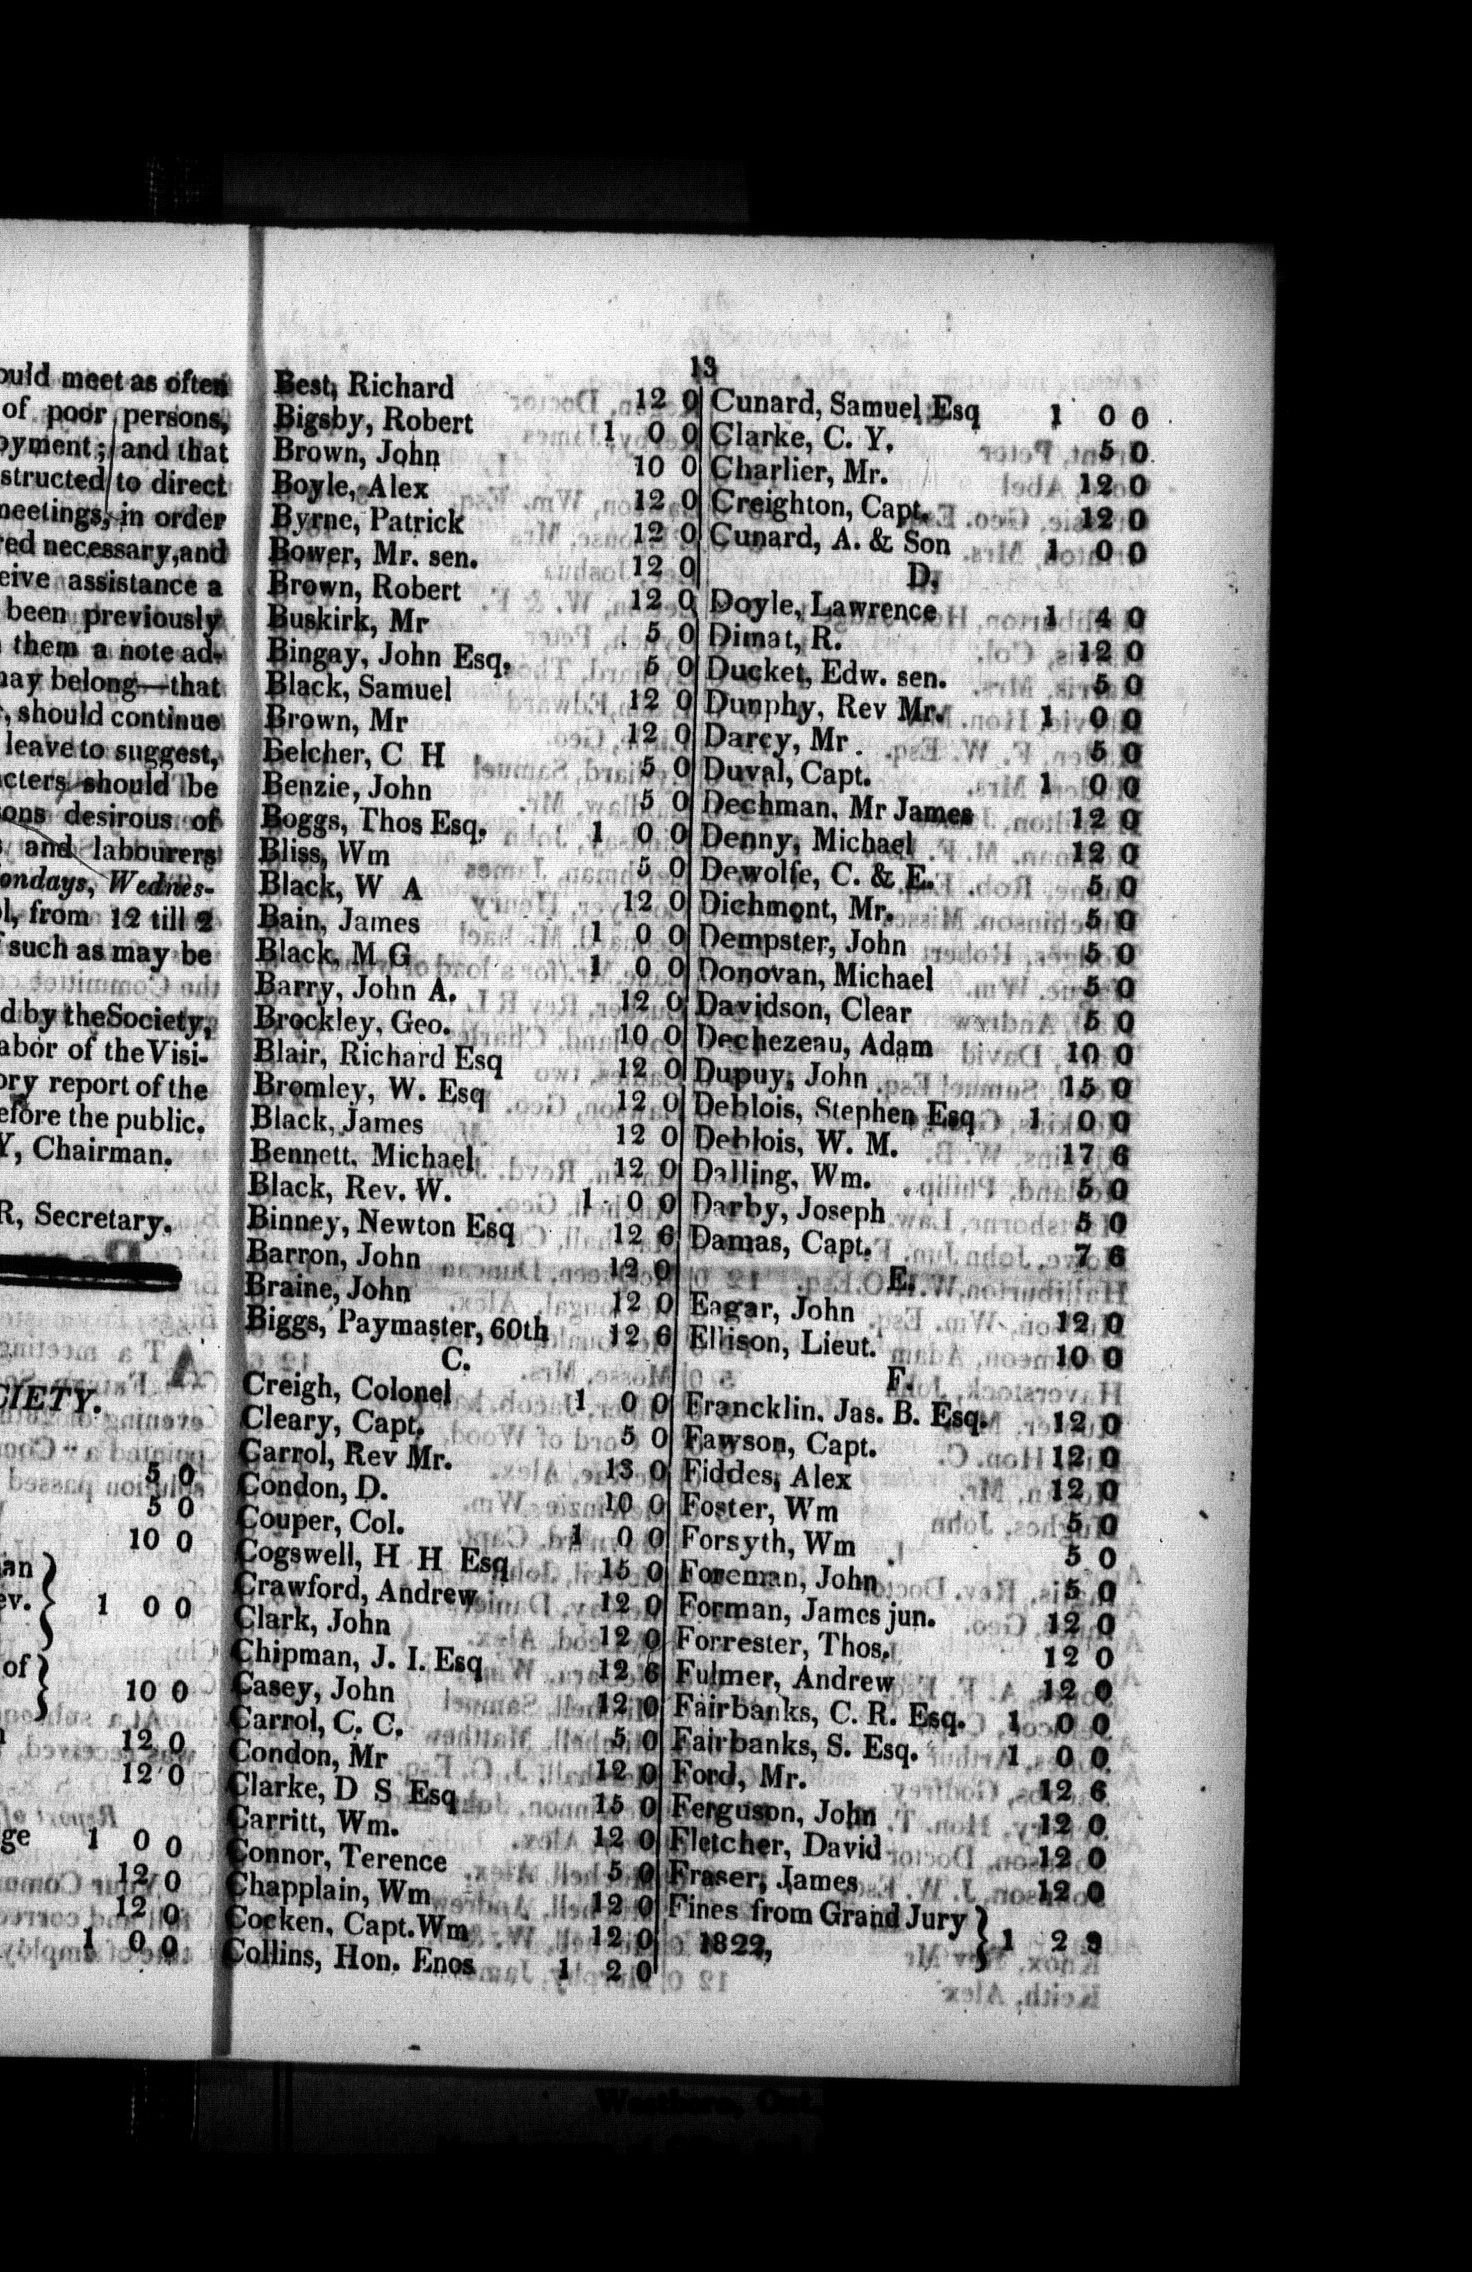 ould meet as often
of poor persons,
oyment; and that
structed to direct
meetings, in order
red necessary, and
eive assistance a
been previously
them a note ad-
may belong—that
, should continue
leave to suggest,
acters should be
ons desirous of
s and labourers
ondays, Wednes-
ol, from 12 till 2
such as may be
d by the Society,
abor of the Visi-
ory report of the
efore the public.
Y, Chairman.
R, Secretary.
CIETY.
5 0
5 0
10 0
ian
ev. } 1 0 0
of } 10 0
12 0
12 0
ge 1 0 0
12 0
12 0
1 0 0
13
Best, Richard 12 0
Bigsby, Robert 1 0 0
Brown, John 10 0
Boyle, Alex 12 0
Byrne, Patrick 12 0
Bower, Mr. sen. 12 0
Brown, Robert 12 0
Buskirk, Mr 5 0
Bingay, John Esq. 5 0
Black, Samuel 12 0
Brown, Mr 12 0
Belcher, C H 5 0
Benzie, John 5 0
Boggs, Thos Esq. 1 0 0
Bliss, Wm 5 0
Black, W A 12 0
Bain, James 1 0 0
Black, M G 1 0 0
Barry, John A. 12 0
Brockley, Geo. 10 0
Blair, Richard Esq 12 0
Bromley, W. Esq 12 0
Black, James 12 0
Bennett, Michael 12 0
Black, Rev. W. 1 0 0
Binney, Newton Esq 12 6
Barron, John 12 0
Braine, John 12 0
Biggs, Paymaster, 60th 12 6
C.
Creigh, Colonel 1 0 0
Cleary, Capt. 5 0
Carrol, Rev Mr. 13 0
Condon, D. 10 0
Couper, Col. 1 0 0
Cogswell, H H Esq 15 0
Crawford, Andrew 12 0
Clark, John 12 0
Chipman, J. I. Esq 12 6
Casey, John 12 0
Carrol, C. C. 5 0
Condon, Mr 12 0
Clarke, D S Esq 15 0
Carritt, Wm. 12 0
Connor, Terence 5 0
Chapplain, Wm 12 0
Cocken, Capt. Wm 12 0
Collins, Hon. Enos 1 2 0
Cunard, Samuel Esq 1 0 0
Clarke, C. Y. 5 0
Charlier, Mr. 12 0
Creighton, Capt. 12 0
Cunard, A. & Son 1 0 0
D.
Doyle, Lawrence 1 4 0
Dimat, R. 12 0
Ducket, Edw. sen. 5 0
Dunphy, Rev Mr. 1 0 0
Darcy, Mr 5 0
Duval, Capt. 1 0 0
Dechman, Mr James 12 0
Denny, Michael 12 0
Dewolfe, C. & E. 5 0
Dichmont, Mr. 5 0
Dempster, John 5 0
Donovan, Michael 5 0
Davidson, Clear 5 0
Dechezeau, Adam 10 0
Dupuy, John 15 0
Deblois, Stephen Esq 1 0 0
Deblois, W. M. 17 6
Dalling, Wm. 5 0
Darby, Joseph 5 0
Damas, Capt. 7 6
E.
Eagar, John 12 0
Ellison, Lieut. 10 0
F.
Francklin. Jas. B. Esq. 12 0
Fawson, Capt. 12 0
Fiddes, Alex 12 0
Foster, Wm 5 0
Forsyth, Wm 5 0
Foreman, John 5 0
Forman, James jun. 12 0
Forrester, Thos. 12 0
Fulmer, Andrew 12 0
Fairbanks, C. R. Esq. 1 0 0
Fairbanks, S. Esq. 1 0 0
Ford, Mr. 12 6
Ferguson, John 12 0
Fletcher, David 12 0
Fraser, James 12 0
Fines from Grand Jury
1822, } 1 2 9